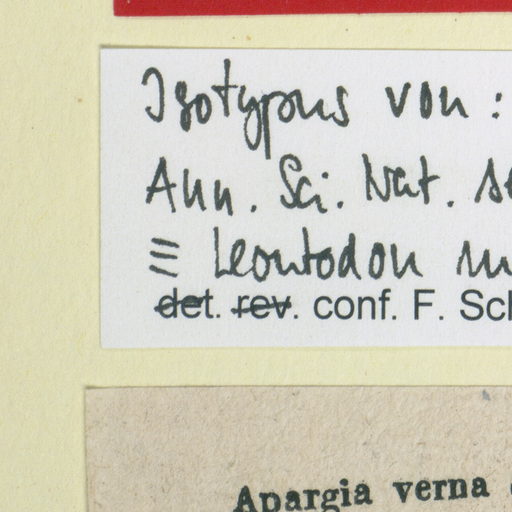 Isotypus von :
Ann. Sci. Nat.
≡ Leontodon
det. rev. conf. F.
Apargia verna